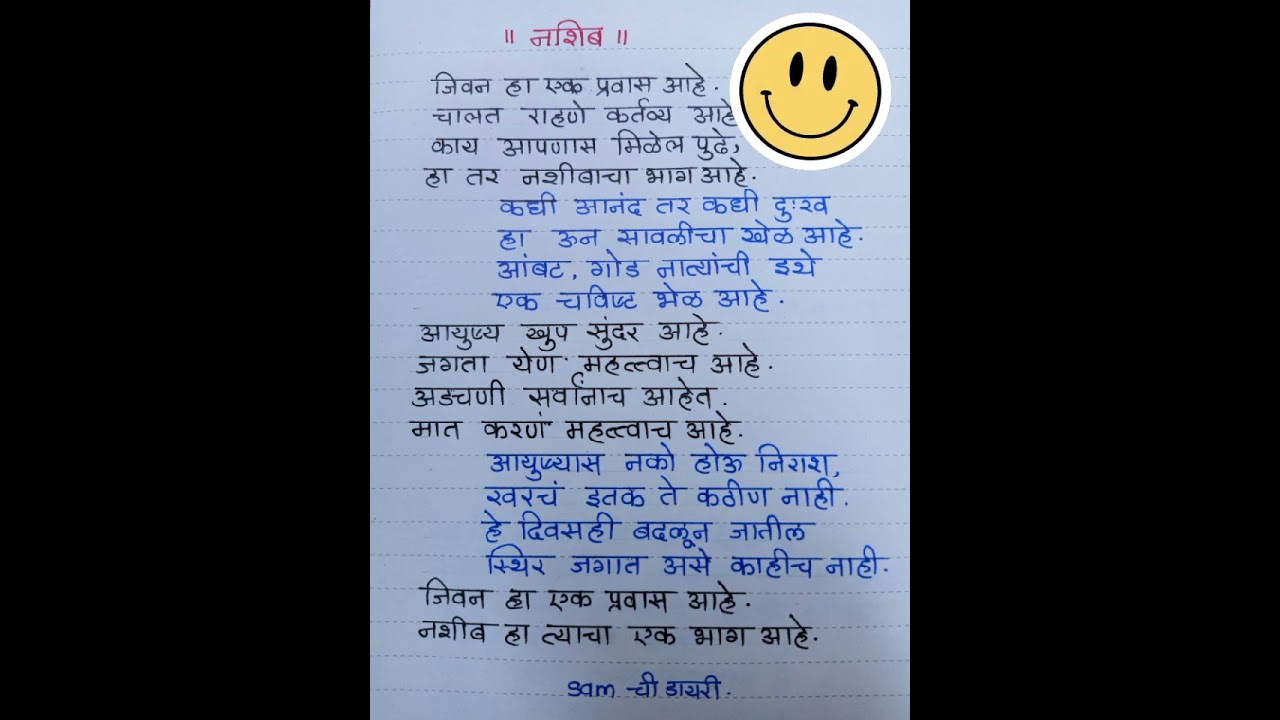 ॥ नशिब ॥
जिवन हा एक प्रवास आहे.
चालत राहणे कर्तव्य आहे
काय आपणास मिळेल पुढे,
हा तर नशीबाचा भाग आहे.
कधी आनंद तर कधी दुःख
हा ऊन सावळीचा खेळ आहे.
आंबट, गोड नात्यांची इथे
एक चविष्ट भेळ आहे.
आयुष्य खुप सुंदर आहे.
जगता येणं महत्त्वाच आहे.
अडचणी सर्वांनाच आहेत.
मात करणं महत्त्वाच आहे.
आयुष्यास नको होऊ निराश,
खरचं इतक ते कठीण नाही.
हे दिवसही बदळून जातील
स्थिर जगात असे काहीच नाही.
जिवन हा एक प्रवास आहे.
नशीब हा त्याचा एक भाग आहे.
sam ची डायरी.